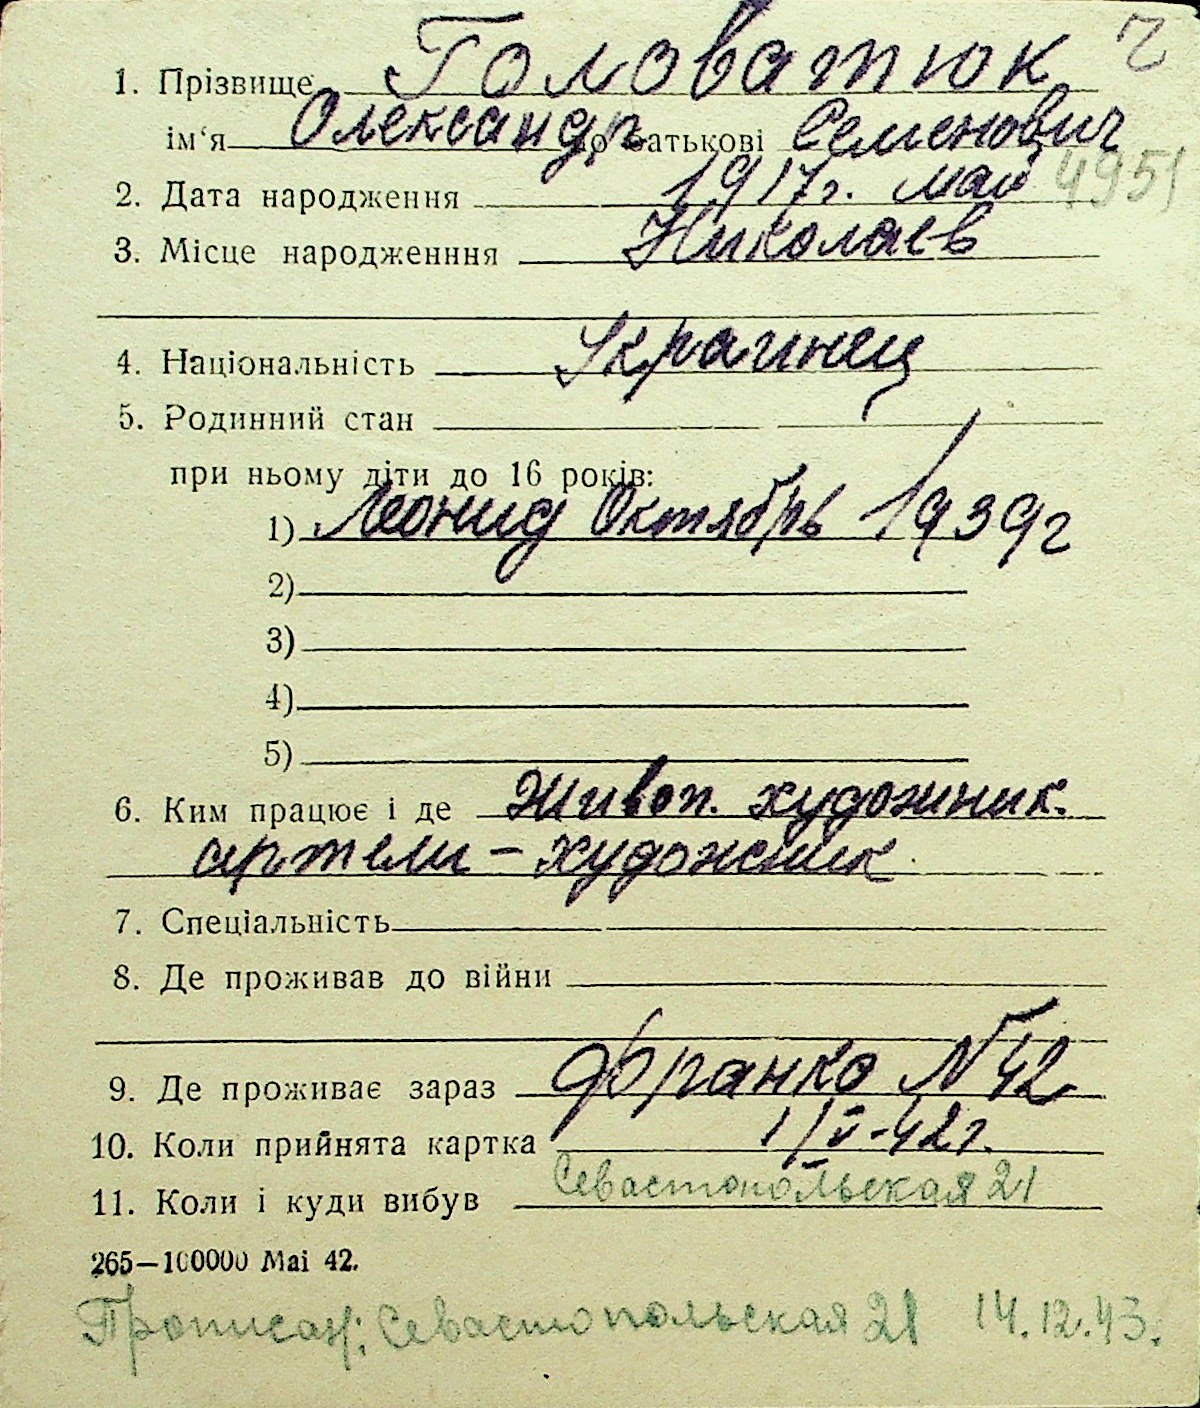 1. Прізвище Головатюк ч
ім‘я Олександр по батькові Семенович
2. Дата народження 1917г. май 4951
3. Місце народженння Николаев
4. Національність Украинец
5. Родинний стан
при ньому діти до 16 років:
1) Леонид Октябрь 1939г
2)
3)
4)
5)
6. Ким працює і де Живоп. художник.
артели – художник.
7. Спеціальність
8. Де проживав до війни
9. Де проживає зараз Франко № 42
10. Коли прийнята картка 1/V-42г.
11. Коли і куди вибув Севастопольская 21
265—100000 Mai 42.
Прописан: Севастопольская 21 14.12.43.